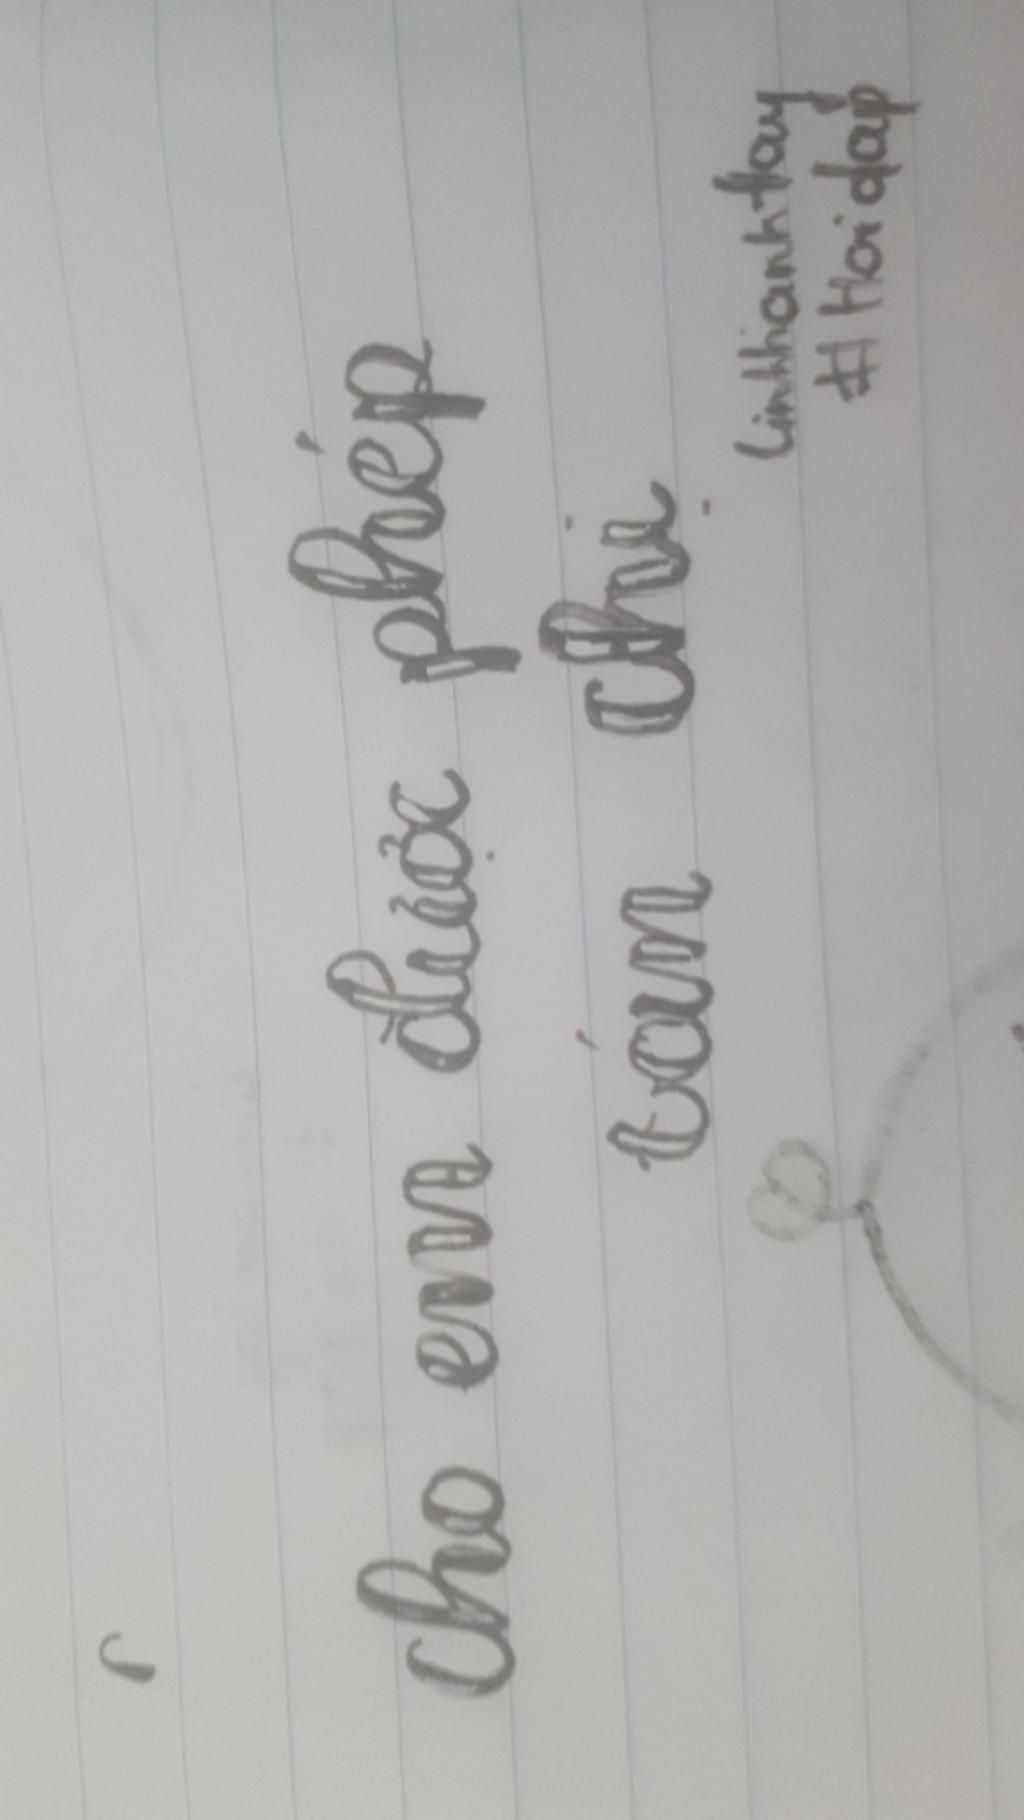 Cho em được phép
tán chị
linhhanhtay
#Hoidap